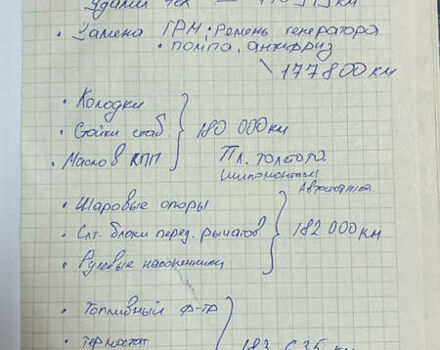 Удалил
• Замена ГРМ; Ремень генератора
• помпа, антифриз
177 800 км
• Колодки
• Стойки стаб.
• Масло в КПП
180 000 км
Пл. толстого
• Шаровые опоры
• Слт. блоки перед. рычагов
• Рулевые наконечники
182 000 км
• Топливный ф-тр
• термостат